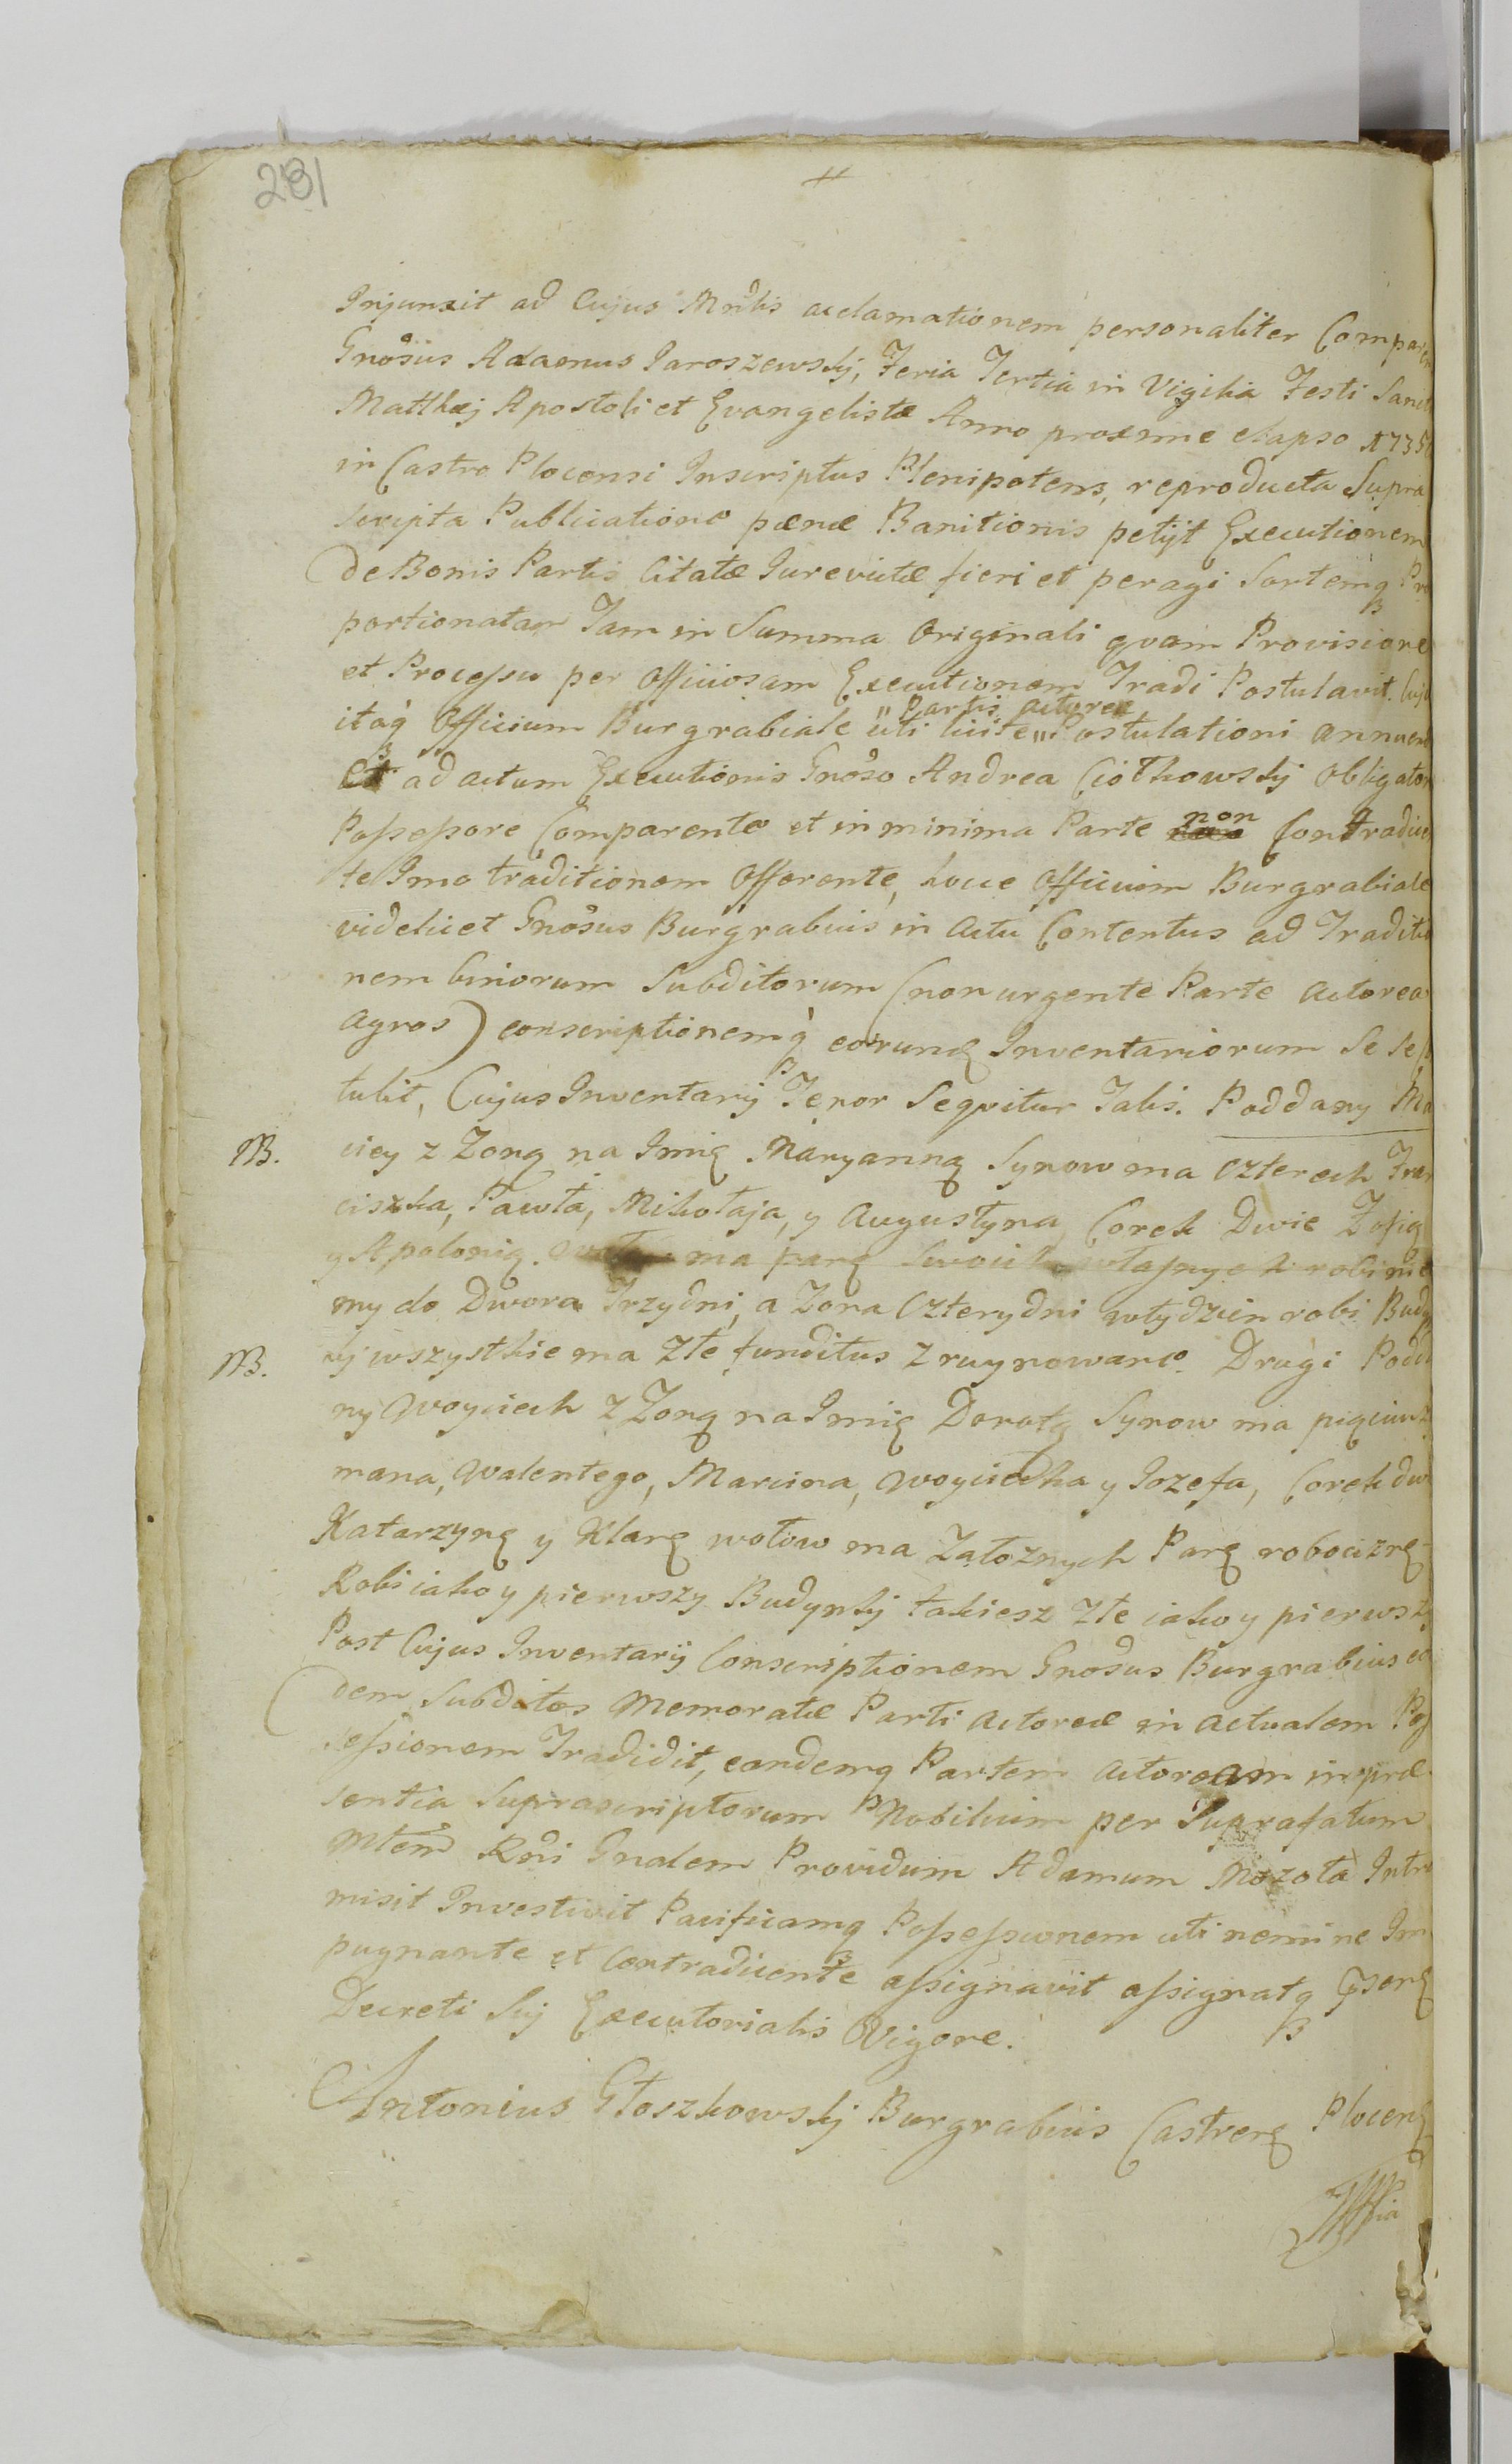 281
Injunxit ad Cujus Mndti acclamationem personaliter Compare
Gnosus Adamus Jaroszewskj, Feria Tertia in Vigilia Festi Sancti
Matthæj Apostoli et Evangelistæ Anno proxime elapso
in Castro Plocensi Inscriptus Plenipotens, reproducta Supra
scripta Publicatione pænæ Banitionis petijt Executionem
de Bonis Partis Citatæ Jurevictæ fieri et peragi Sortemq Pro
portionatam Tam in Summa Originali qvam Provisione
et Processu per Officiosam Executionem Tradi Postulavit. Cujus
itaq Officium Burgrabiale uti licitæ "Partis actoreæ" Postulationi annuen
et ad actum Executionis Gnoso Andrea Ciołkowskj Obligator
Possessore Comparente et in minima Parte non Contradicen
te Imo traditionem Offerente, hocce Officium Burgrabiale
videlicet Gnosus Burgrabius in Actu Contentus ad Traditio
nem binorum Subditorum (non urgente Parte Actorea
Agros) conscriptionemq eorund Inventariorum Se se
tulit, Cujus Inventarij Tenor Seqvitur Talis. Poddany Ma
NB. ciey z Zoną na Imię Maryanną Synow ma czterech Fran
ciszka, Pawła, Mikołaja, y Augustyna Corek Dwie Zofię
y Apolonię. ma parę Swoich własnych robi
my do Dwora Trzydni, a Zona Czterydni wtydzien robi Budyn
NB. kj wszystkie ma złe funditus zruynowane. Drugi Podda
ny Woyciech z Zoną na Imię Dorotą Synow ma pięciu
mana, Walentego, Marcina, Woyciecha y Jozefa, Corek dwi
Katarzynę y Klarę wołow ma Załoznych Parę robociznę
Robi iako y pierwszy Budynkj takiesz złe iako y pierwszy
Post Cujus Inventarij Conscriptionem Gnosus Burgrabius eos
dem Subditos Memoratæ Parti Actoreæ in actualem Pos
sessionem Tradidit, eandemq Partem Actoream in præ
sentia Suprascriptorum Nobilium per Suprafatum
Mlem Rni Gnalem Providum Adamum Mozoła Intro
misit Investivit Pacificamq Possessionem uti nemine Im
pugnante et Contradicente assignavit assignatq
Decreti Suj Executorialis Vigore.
Antonius Głoszkowskj Burgrabius Castren Plocen